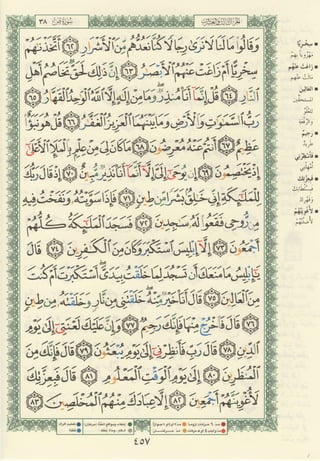 الجزء الثالث والعشرون
سورة ص ٣٨
وَقَالُوا۟ مَا لَنَا لَا نَرَىٰ رِجَالًا كُنَّا نَعُدُّهُم مِّنَ ٱلْأَشْرَارِ ﴿٦٢﴾ أَتَّخَذْنَٰهُمْ
سِخْرِيًّا أَمْ زَاغَتْ عَنْهُمُ ٱلْأَبْصَٰرُ ﴿٦٣﴾ إِنَّ ذَٰلِكَ لَحَقٌّ تَخَاصُمُ أَهْلِ
ٱلنَّارِ ﴿٦٤﴾ قُلْ إِنَّمَآ أَنَا۠ مُنذِرٌ وَمَا مِنْ إِلَٰهٍ إِلَّا ٱللَّهُ ٱلْوَٰحِدُ ٱلْقَهَّارُ ﴿٦٥﴾
رَبُّ ٱلسَّمَٰوَٰتِ وَٱلْأَرْضِ وَمَا بَيْنَهُمَا ٱلْعَزِيزُ ٱلْغَفَّٰرُ ﴿٦٦﴾ قُلْ هُوَ نَبَؤٌا۟
عَظِيمٌ ﴿٦٧﴾ أَنتُمْ عَنْهُ مُعْرِضُونَ ﴿٦٨﴾ مَا كَانَ لِىَ مِنْ عِلْمٍۭ بِٱلْمَلَإِ ٱلْأَعْلَىٰٓ
إِذْ يَخْتَصِمُونَ ﴿٦٩﴾ إِن يُوحَىٰٓ إِلَىَّ إِلَّآ أَنَّمَآ أَنَا۠ نَذِيرٌ مُّبِينٌ ﴿٧٠﴾ إِذْ قَالَ رَبُّكَ
لِلْمَلَٰٓئِكَةِ إِنِّى خَٰلِقٌۢ بَشَرًا مِّن طِينٍ ﴿٧١﴾ فَإِذَا سَوَّيْتُهُۥ وَنَفَخْتُ فِيهِ
مِن رُّوحِى فَقَعُوا۟ لَهُۥ سَٰجِدِينَ ﴿٧٢﴾ فَسَجَدَ ٱلْمَلَٰٓئِكَةُ كُلُّهُمْ
أَجْمَعُونَ ﴿٧٣﴾ إِلَّآ إِبْلِيسَ ٱسْتَكْبَرَ وَكَانَ مِنَ ٱلْكَٰفِرِينَ ﴿٧٤﴾ قَالَ
يَٰٓإِبْلِيسُ مَا مَنَعَكَ أَن تَسْجُدَ لِمَا خَلَقْتُ بِيَدَىَّ أَسْتَكْبَرْتَ أَمْ كُنتَ
مِنَ ٱلْعَالِينَ ﴿٧٥﴾ قَالَ أَنَا۠ خَيْرٌ مِّنْهُ خَلَقْتَنِى مِن نَّارٍ وَخَلَقْتَهُۥ مِن طِينٍ
﴿٧٦﴾ قَالَ فَٱخْرُجْ مِنْهَا فَإِنَّكَ رَجِيمٌ ﴿٧٧﴾ وَإِنَّ عَلَيْكَ لَعْنَتِىٓ إِلَىٰ يَوْمِ
ٱلدِّينِ ﴿٧٨﴾ قَالَ رَبِّ فَأَنظِرْنِىٓ إِلَىٰ يَوْمِ يُبْعَثُونَ ﴿٧٩﴾ قَالَ فَإِنَّكَ مِنَ
ٱلْمُنظَرِينَ ﴿٨٠﴾ إِلَىٰ يَوْمِ ٱلْوَقْتِ ٱلْمَعْلُومِ ﴿٨١﴾ قَالَ فَبِعِزَّتِكَ
لَأُغْوِيَنَّهُمْ أَجْمَعِينَ ﴿٨٢﴾ إِلَّا عِبَادَكَ مِنْهُمُ ٱلْمُخْلَصِينَ ﴿٨٣﴾
٤٥٧
سِخْرِيًّا
زَاغَتْ عَنْهُمُ
العَالِينَ
رَجِيمٌ
فَأَنظِرْنِي
فَبِعِزَّتِكَ
لَأُغْوِيَنَّهُمْ